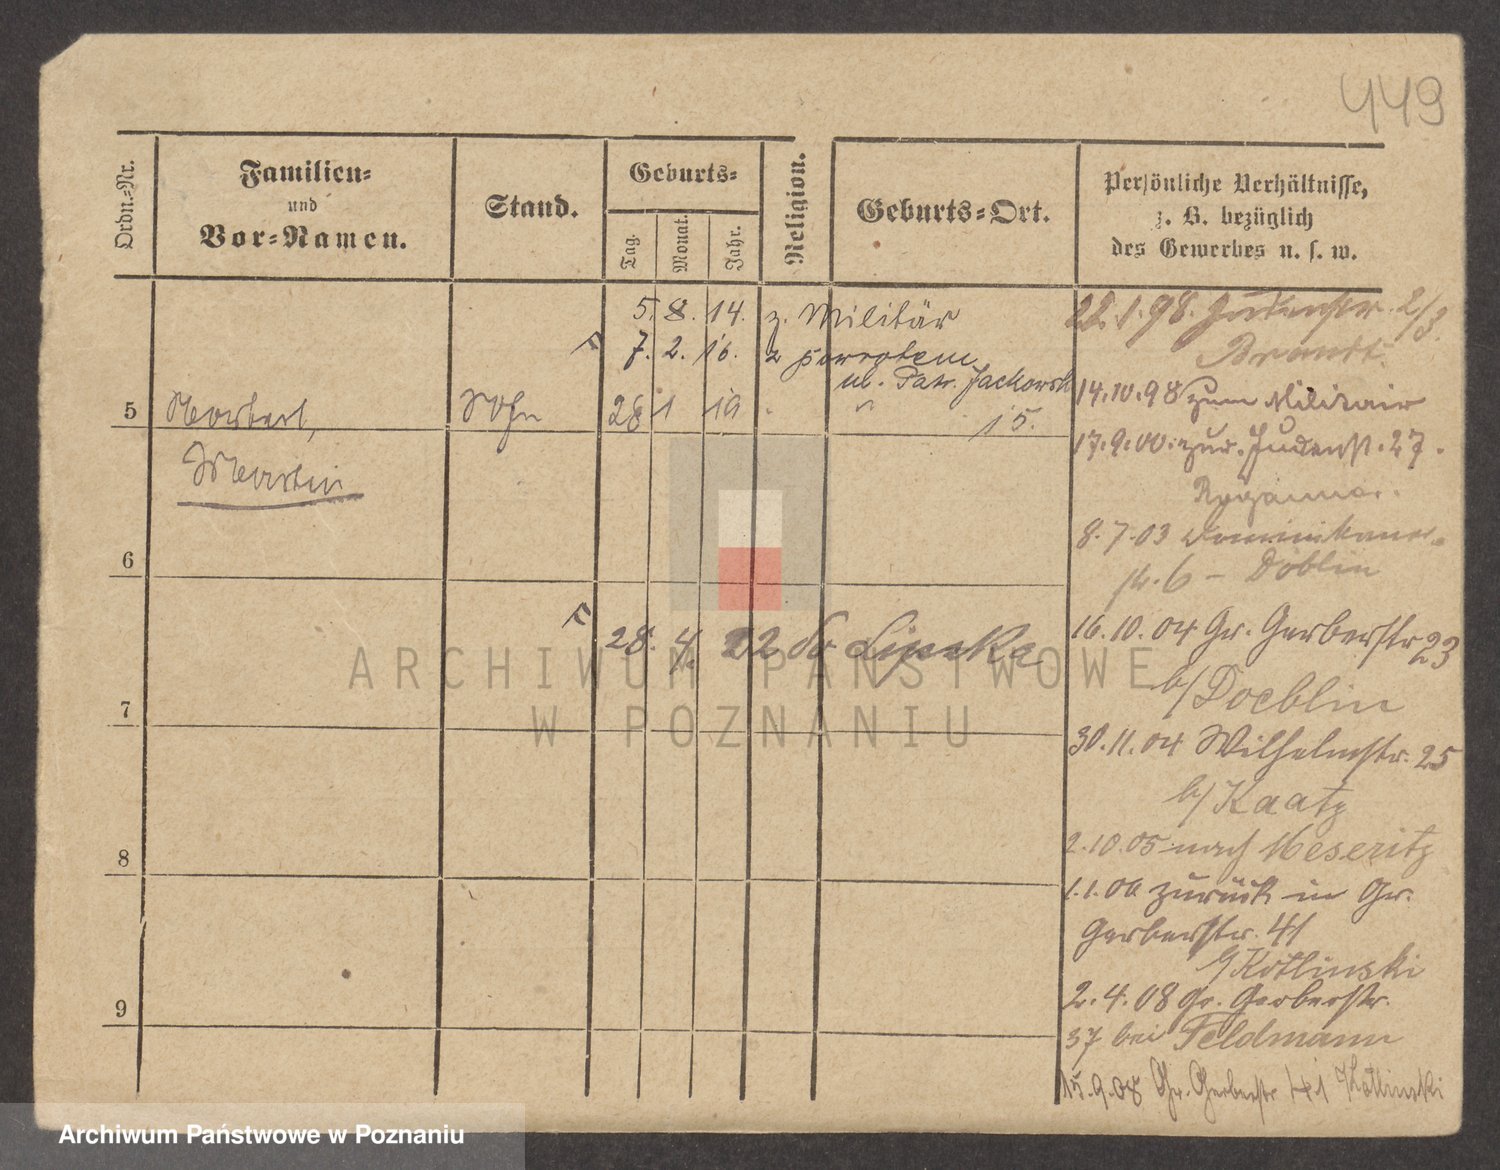 449
Ordn.-Nr.
Familien-
und
Vor-Namen.
Stand.
Geburts-
Tag.
Monat.
Jahr.
Religion.
Geburts-Ort.
Persönliche Verhältnisse,
z. B. bezüglich
des Gewerbes u. s. w.
5. 8. 14. z. Militär
7. 2. 16. z powrotem
ul. Patr. Jackowsk
15.
5 Norbert, Sohn 28 1 19 "
Martin
6
28. 4. 22 do Lipska
7
8
9
22.1.98. Judenstr. 2/3.
Brandt.
14.10.98 zum Militair
17.9.00. zur. Judenst. 27.
8.7.03 Dominikaner-
str. 6 - Döblin
16.10.04 Gr. Gerberstr 23
b/ Doeblin
30.11.04 Wilhelmstr. 25
b/ Kaatz
2.10.05 nach Meseritz
1.1.06 zurück in Gr.
Gerberstr. 41
b/ Kotlinski
2.4.08 Gr. Gerberstr.
37 bei Feldmann
15.9.08 Gr. Gerberstr 41 Kotlinski
ARCHIWUM PAŃSTWOWE
W POZNANIU
Archiwum Państwowe w Poznaniu